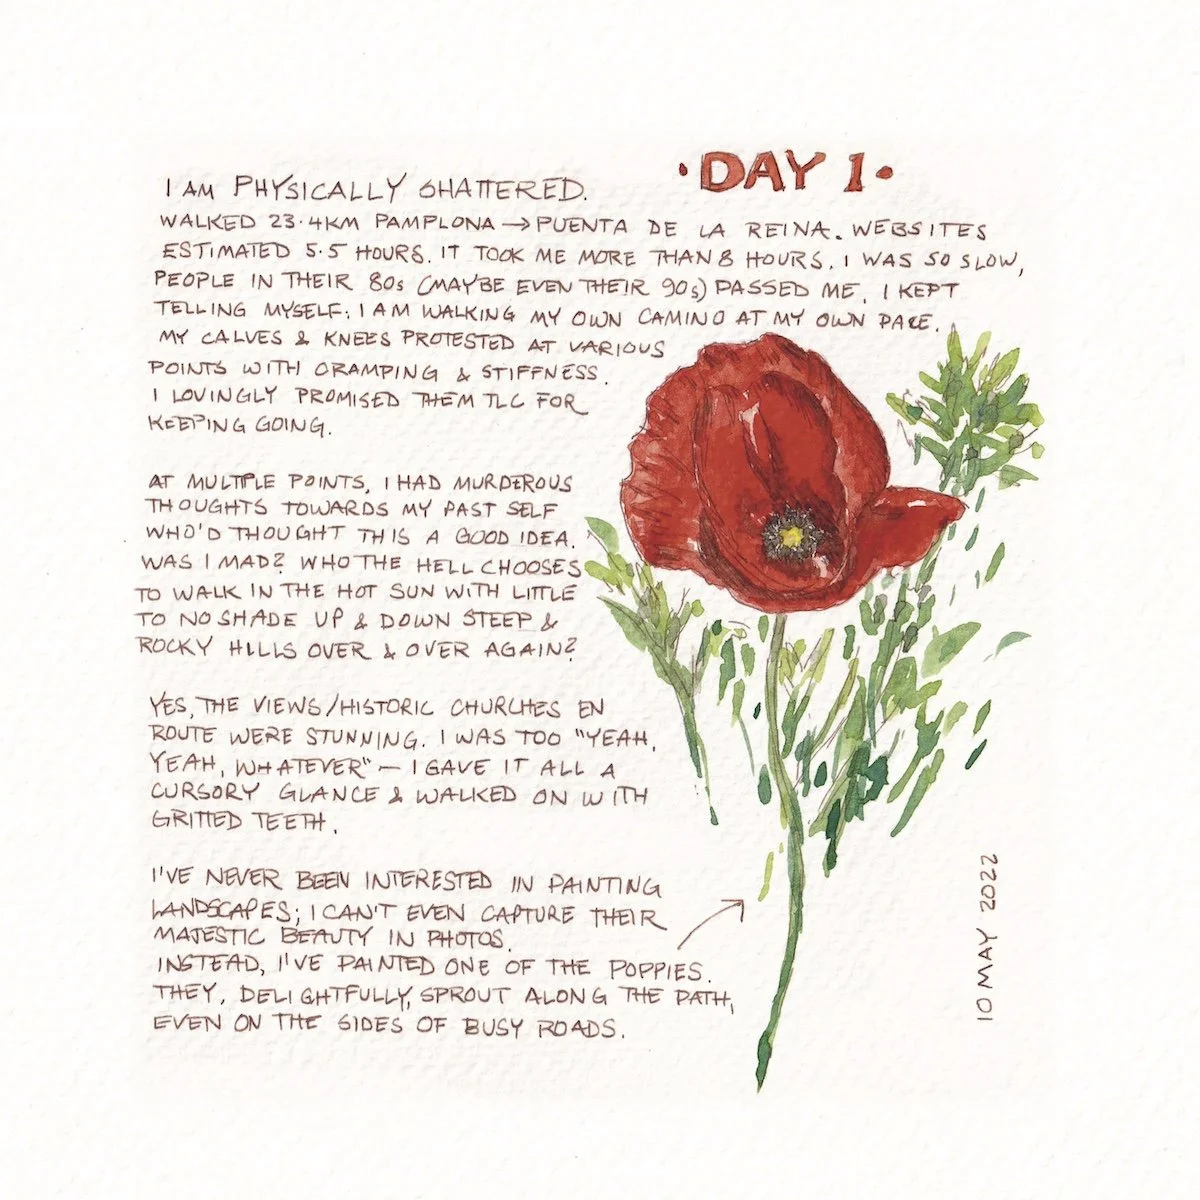 ·DAY 1·
I AM PHYSICALLY SHATTERED.
WALKED 23·4KM PAMPLONA → PUENTA DE LA REINA. WEBSITES
ESTIMATED 5·5 HOURS. IT TOOK ME MORE THAN 8 HOURS. I WAS SO SLOW,
PEOPLE IN THEIR 80s (MAYBE EVEN THEIR 90s) PASSED ME. I KEPT
TELLING MYSELF: I AM WALKING MY OWN CAMINO AT MY OWN PACE.
MY CALVES & KNEES PROTESTED AT VARIOUS
POINTS WITH CRAMPING & STIFFNESS.
I LOVINGLY PROMISED THEM TLC FOR
KEEPING GOING.
AT MULTIPLE POINTS, I HAD MURDEROUS
THOUGHTS TOWARDS MY PAST SELF
WHO'D THOUGHT THIS A GOOD IDEA.
WAS I MAD? WHO THE HELL CHOOSES
TO WALK IN THE HOT SUN WITH LITTLE
TO NO SHADE UP & DOWN STEEP &
ROCKY HILLS OVER & OVER AGAIN?
YES, THE VIEWS/HISTORIC CHURCHES EN
ROUTE WERE STUNNING. I WAS TOO "YEAH,
YEAH, WHATEVER" — I GAVE IT ALL A
CURSORY GLANCE & WALKED ON WITH
GRITTED TEETH.
I'VE NEVER BEEN INTERESTED IN PAINTING
LANDSCAPES; I CAN'T EVEN CAPTURE THEIR
MAJESTIC BEAUTY IN PHOTOS.
INSTEAD, I'VE PAINTED ONE OF THE POPPIES.
THEY, DELIGHTFULLY, SPROUT ALONG THE PATH,
EVEN ON THE SIDES OF BUSY ROADS.
10 MAY 2022